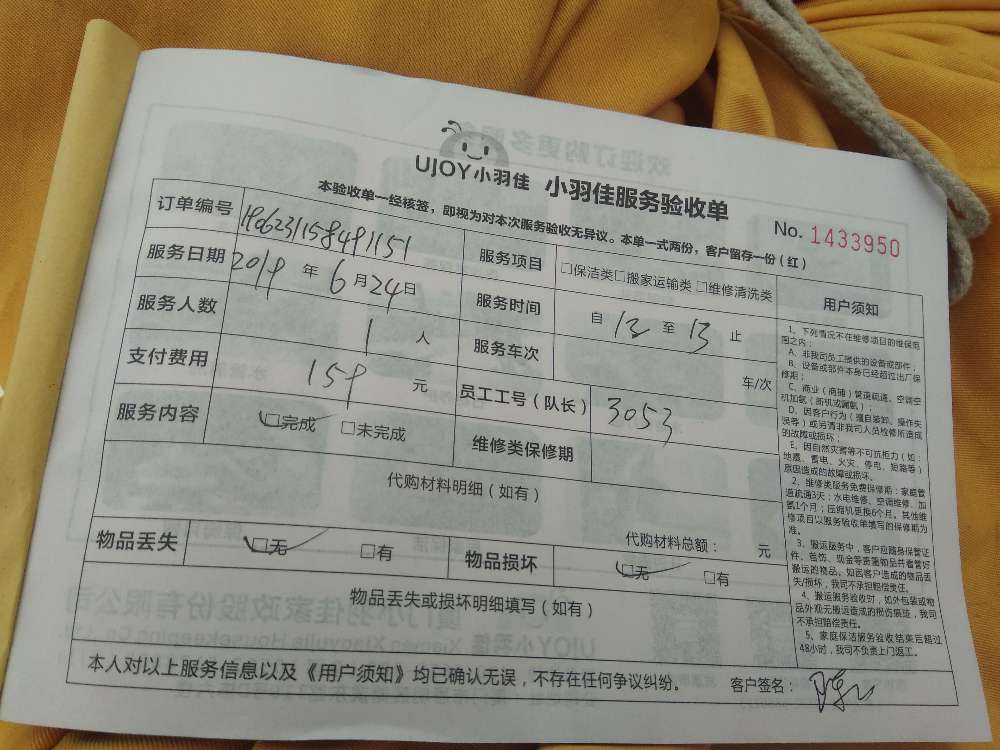 UJOY小羽佳 小羽佳服务验收单
本验收单一经核签，即视为对本次服务验收无异议。本单一式两份，客户留存一份（红）
No. 1433950
订单编号
服务项目 □保洁类□搬家运输类 □维修清洗类
服务日期 2019 年 6 月 24 日
服务时间 自 12 至 13 止
服务人数 1 人
服务车次 车/次
支付费用 159 元
员工工号（队长） 3053
服务内容 □完成 □未完成
维修类保修期
代购材料明细（如有）
代购材料总额： 元
物品丢失 □无 □有
物品损坏 □无 □有
物品丢失或损坏明细填写（如有）
本人对以上服务信息以及《用户须知》均已确认无误，不存在任何争议纠纷。
客户签名：
用户须知
1、下列情况不在维修项目的维保范
围之内：
A、非我司员工提供的设备或部件；
B、设备或部件本身已经超过出厂保
修期；
C、商业（商铺）管道疏通、空调空
机加氨（拆机或漏氨）；
D、因客户行为（擅自装卸、操作失
误等）或另请非我司人员检修所造成
的故障或损坏；
E、因自然灾害等不可抗拒力（如：
地震、雷电、火灾、停电、短路等）
原因造成的故障或损坏。
2、维修类服务免费保修期：家庭管
道疏通3天；水电维修、空调维修、加
氨1个月；压缩机更换6个月。其他维
修项目以服务验收单填写的保修期为
准。
3、搬运服务中，客户应随身保管证
件、首饰、现金等贵重物品并看管好
搬运的物品。如因客户造成的物品丢
失/损坏，我司不承担赔偿责任。
4、搬运服务验收时，如外包装或物
品外观无搬运造成的损伤痕迹，我司
不承担赔偿责任。
5、家庭保洁服务验收结束后超过
48小时，我司不负责上门返工。